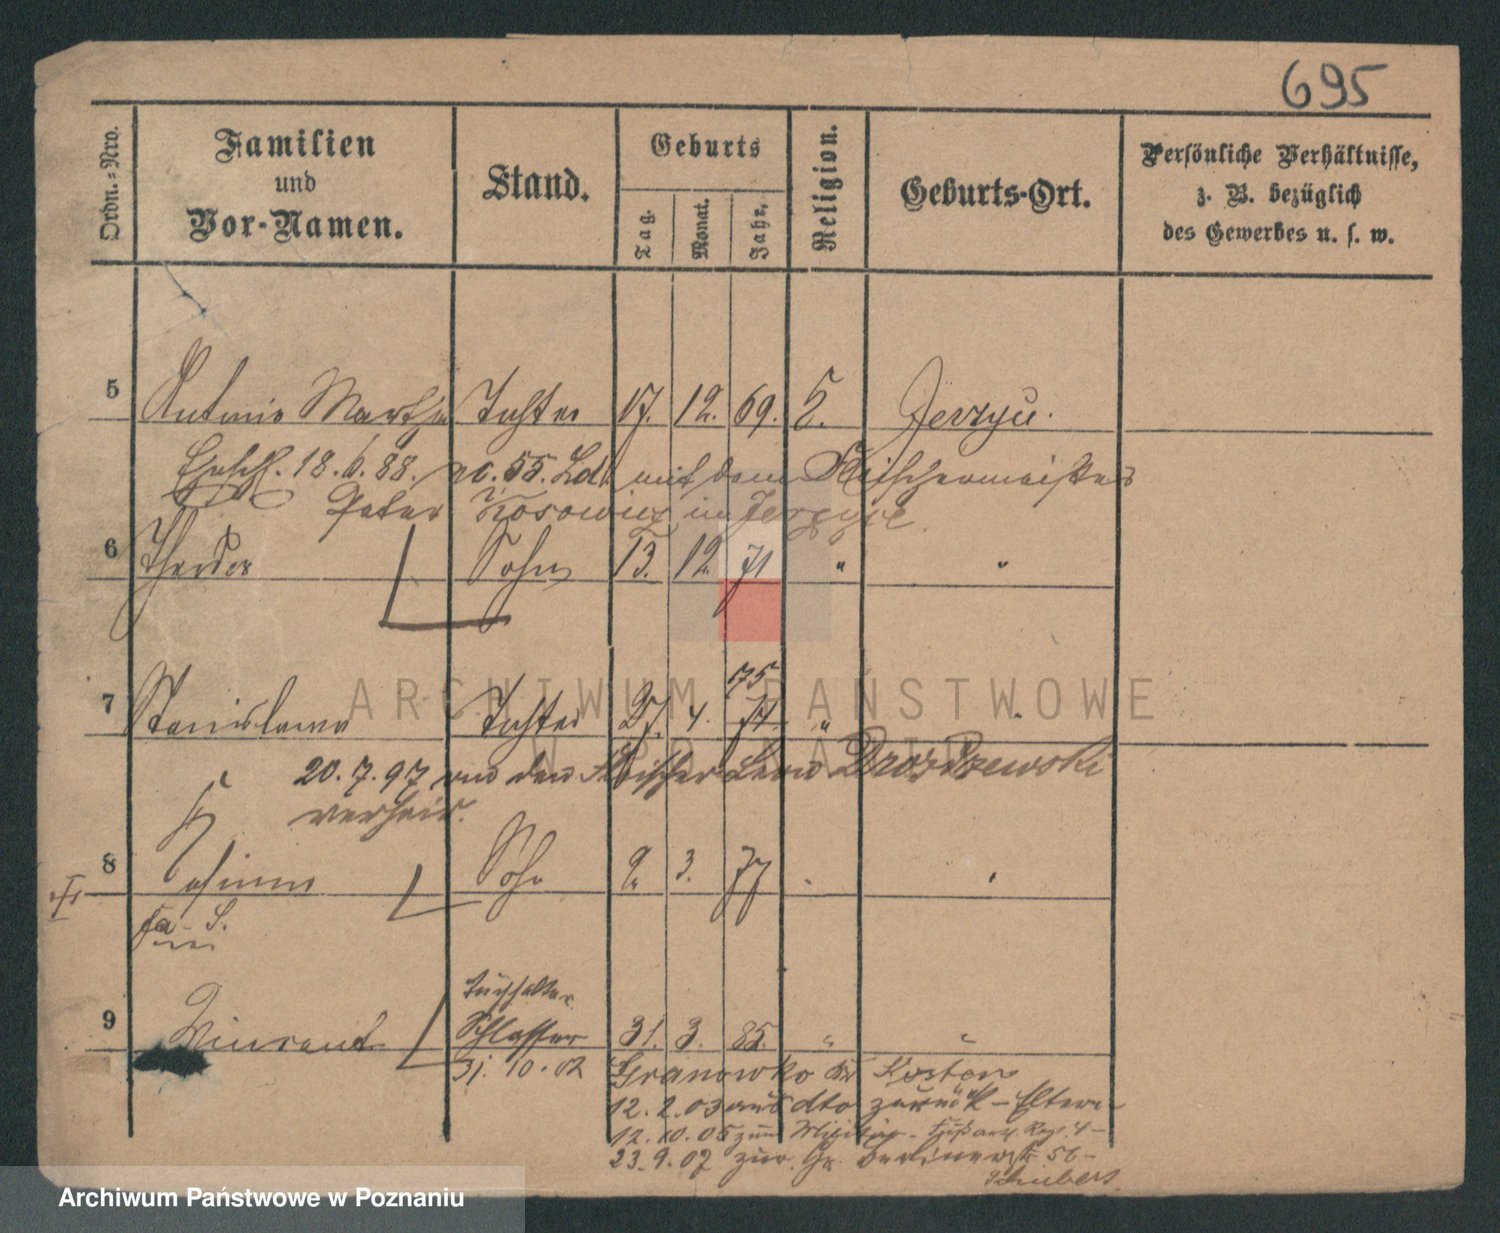 695
Ordn.=Nro.
Familien
und
Vor-Namen.
Stand.
Geburts
Tag.
Monat.
Jahr.
Religion.
Geburts-Ort.
Persönliche Verhältnisse,
z. B. bezüglich
des Gewerbes u. s. w.
5 Antonie Martha Tochter 17. 12. 69. Jerzyce.
18. 6. 88. No. 55. mit dem Fleischermeister
Peter in Jerzyce
6 Theodor Sohn 13. 12. 71 "
75
7 Stanislawa Tochter 27. 4. 74 "
20. 7. 97 den Fleischer Drozdzewski
verheir.
8 Casimir Sohn 2. 3. 77
9 Vincent Schlosser 31. 3. 85. " "
31. 10. 02 Granowko Kr Kosten
12. 2. 03 aus dto zurück – Eltern –
12. 10. 05 zum Militär – Reg. 4 –
23. 9. 07 zur. Gr. Berlinerstr. 56 –
Schubert
ARCHIWUM PAŃSTWOWE
W POZNANIU
Archiwum Państwowe w Poznaniu